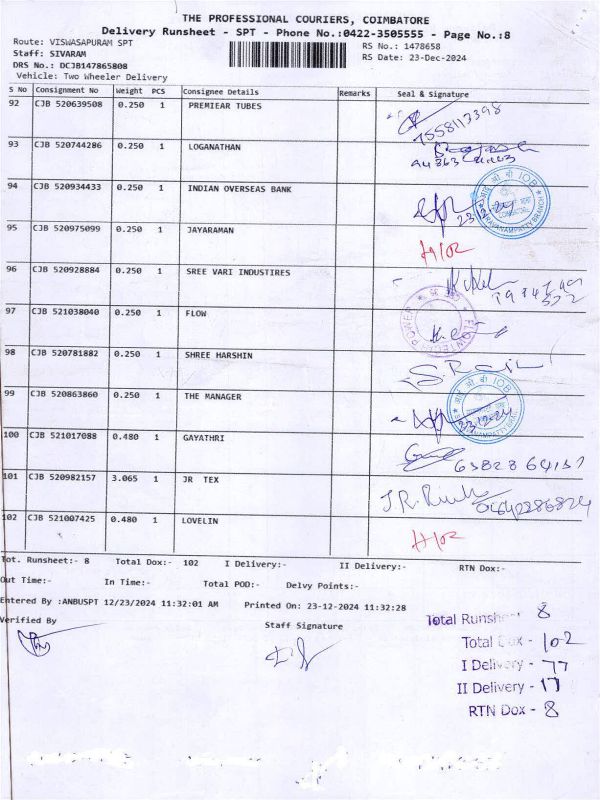 THE PROFESSIONAL COURIERS, COIMBATORE
Delivery Runsheet - SPT - Phone No.:0422-3505555 - Page No.:8
Route: VISWASAPURAM SPT
RS No: 1478658
Staff: SIVARAM
RS Date: 23-Dec-2024
DRS No.: DCJB147865808
Vehicle: Two Wheeler Delivery
S No Consignment No Weight PCS Consignee Details Remarks Seal & Signature
92 CJB 520639508 0.250 1 PREMIEAR TUBES
7558117398
93 CJB 520744286 0.250 1 LOGANATHAN
94 CJB 520934433 0.250 1 INDIAN OVERSEAS BANK
IOB
95 CJB 520975099 0.250 1 JAYARAMAN
H/02
96 CJB 520928884 0.250 1 SREE VARI INDUSTIRES
97 CJB 521038040 0.250 1 FLOW
98 CJB 520781882 0.250 1 SHREE HARSHIN
99 CJB 520863860 0.250 1 THE MANAGER
IOB
23.12.24
100 CJB 521017088 0.480 1 GAYATHRI
101 CJB 520982157 3.065 1 JR TEX
102 CJB 521007425 0.480 1 LOVELIN
H/02
Tot. Runsheet:- 8 Total Dox:- 102 I Delivery:- II Delivery:- RTN Dox:-
Out Time:- In Time:- Total POD:- Delvy Points:-
Entered By :ANBUSPT 12/23/2024 11:32:01 AM Printed On: 23-12-2024 11:32:28
Verified By
Staff Signature
Total Runsheet 8
Total Dox - 102
I Delivery - 77
II Delivery - 17
RTN Dox - 8